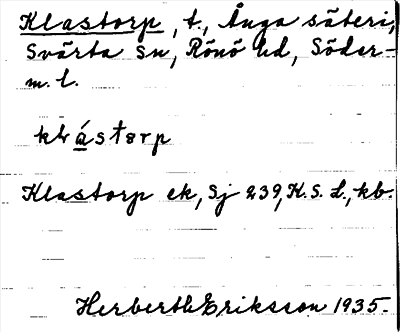 Klastorp, t., Ånga säteri,
Svärta sn, Rönö hd, Söder-
m. l.
Klastorp ek, Sj 239, K. S. L., kb.
Herberth Eriksson 1935.